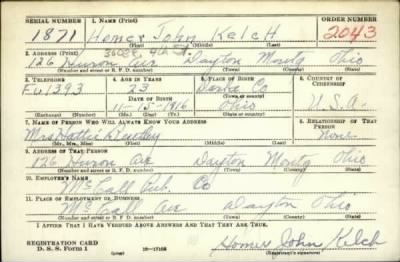 SERIAL NUMBER 1. NAME (Print) ORDER NUMBER
1871 Homer John Kelch 2043
(First) (Middle) (Last)
3608 E. 4th St.
2. ADDRESS (Print)
126 Huron Ave Dayton Montg Ohio
(Number and street or R. F. D. number) (Town) (County) (State)
3. TELEPHONE 4. AGE IN YEARS 5. PLACE OF BIRTH 6. COUNTRY OF CITIZENSHIP
FU1393 23 Darke Co
DATE OF BIRTH (Town or county)
11-15-1916 Ohio U.S.A.
(Mo.) (Day) (Yr.) (State or country)
7. NAME OF PERSON WHO WILL ALWAYS KNOW YOUR ADDRESS 8. RELATIONSHIP OF THAT PERSON
Mrs Hattie None
(Mr., Mrs., Miss) (First) (Middle) (Last)
9. ADDRESS OF THAT PERSON
126 Huron Ave Dayton Montg Ohio
(Number and street or R. F. D. number) (Town) (County) (State)
10. EMPLOYER'S NAME
McCall Pub. Co
11. PLACE OF EMPLOYMENT OR BUSINESS
McCall Ave Dayton Ohio
(Number and street or R. F. D. number) (Town) (County) (State)
I AFFIRM THAT I HAVE VERIFIED ABOVE ANSWERS AND THAT THEY ARE TRUE.
REGISTRATION CARD
D. S. S. Form 1 (over) 16—17105 Homer John Kelch
(Registrant's signature)